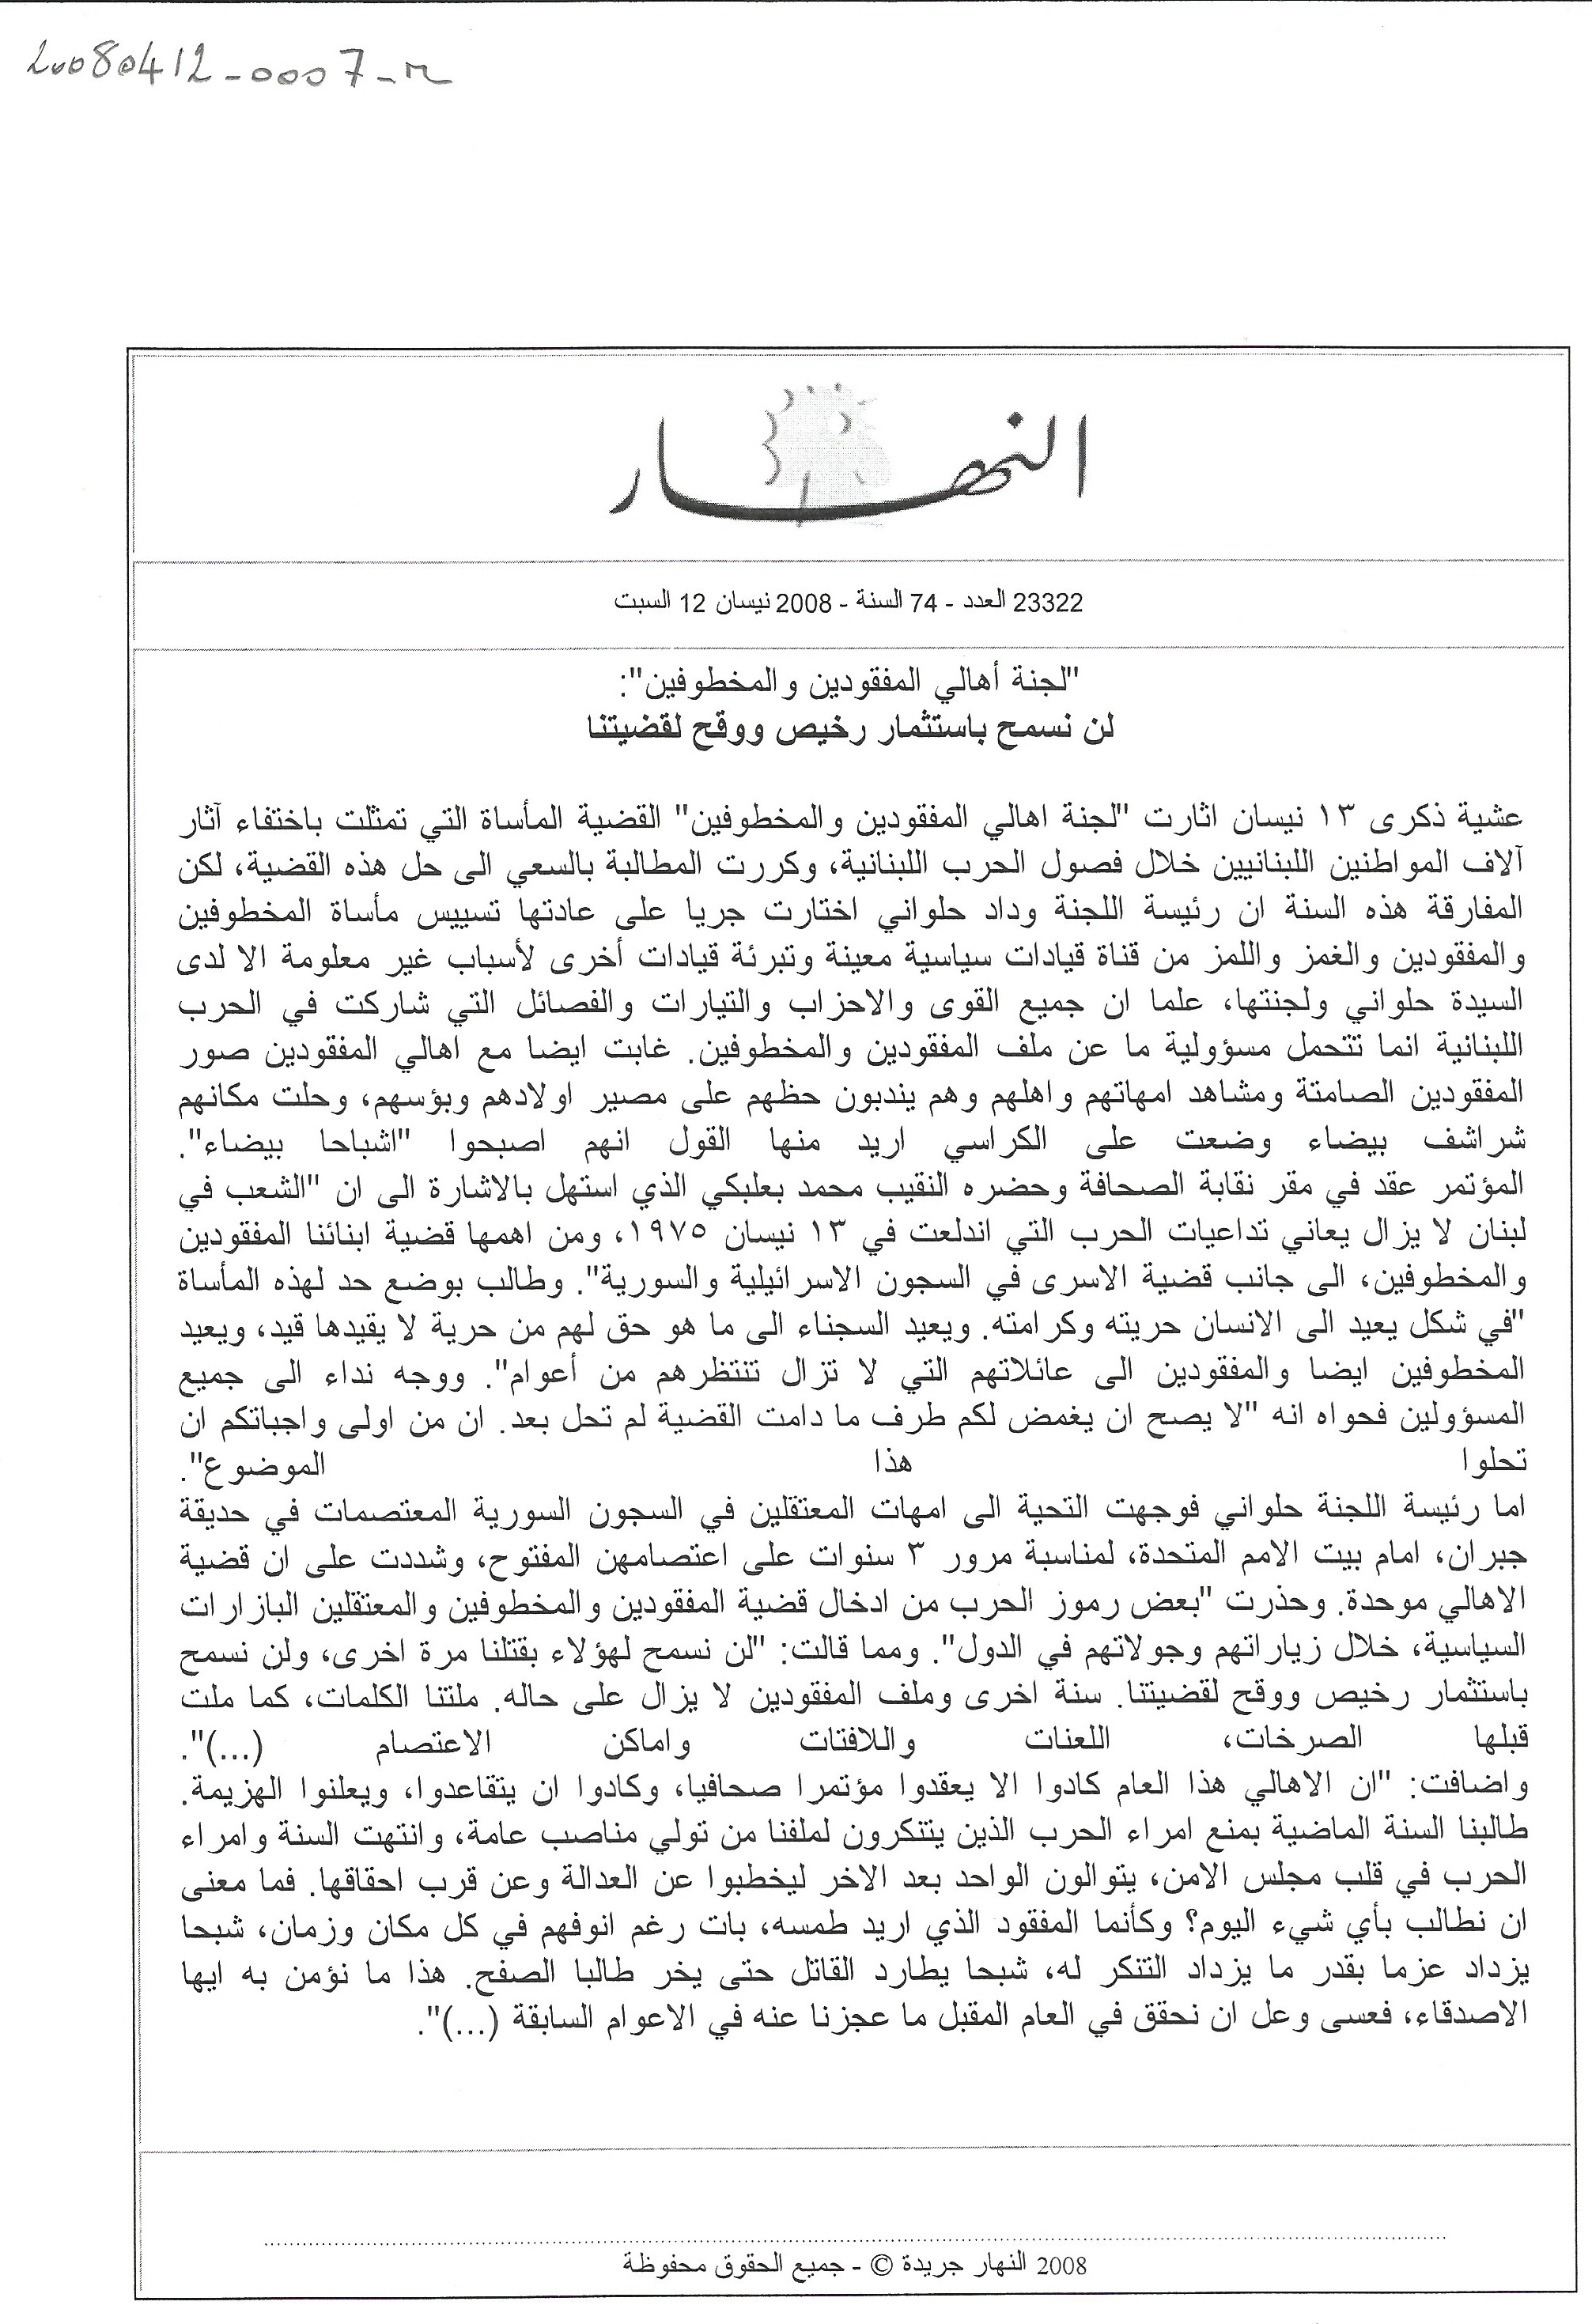 20080412-0007-
النهار
23322 العدد - 74 السنة - 2008 نيسان 12 السبت
"لجنة أهالي المفقودين والمخطوفين":
لن نسمح باستثمار رخيص ووقح لقضيتنا
عشية ذكرى ١٣ نيسان اثارت "لجنة اهالي المفقودين والمخطوفين" القضية المأساة التي تمثلت باختفاء آثار
آلاف المواطنين اللبنانيين خلال فصول الحرب اللبنانية، وكررت المطالبة بالسعي الى حل هذه القضية، لكن
المفارقة هذه السنة ان رئيسة اللجنة وداد حلواني اختارت جريا على عادتها تسييس مأساة المخطوفين
والمفقودين والغمز واللمز من قناة قيادات سياسية معينة وتبرئة قيادات أخرى لأسباب غير معلومة الا لدى
السيدة حلواني ولجنتها، علما ان جميع القوى والاحزاب والتيارات والفصائل التي شاركت في الحرب
اللبنانية انما تتحمل مسؤولية ما عن ملف المفقودين والمخطوفين. غابت ايضا مع اهالي المفقودين صور
المفقودين الصامتة ومشاهد امهاتهم واهلهم وهم يندبون حظهم على مصير اولادهم وبؤسهم، وحلت مكانهم
شراشف بيضاء وضعت على الكراسي اريد منها القول انهم اصبحوا "اشباحا بيضاء".
المؤتمر عقد في مقر نقابة الصحافة وحضره النقيب محمد بعلبكي الذي استهل بالاشارة الى ان "الشعب في
لبنان لا يزال يعاني تداعيات الحرب التي اندلعت في ١٣ نيسان ١٩٧٥، ومن اهمها قضية ابنائنا المفقودين
والمخطوفين، الى جانب قضية الاسرى في السجون الاسرائيلية والسورية". وطالب بوضع حد لهذه المأساة
"في شكل يعيد الى الانسان حريته وكرامته. ويعيد السجناء الى ما هو حق لهم من حرية لا يقيدها قيد، ويعيد
المخطوفين ايضا والمفقودين الى عائلاتهم التي لا تزال تنتظرهم من أعوام". ووجه نداء الى جميع
المسؤولين فحواه انه "لا يصح ان يغمض لكم طرف ما دامت القضية لم تحل بعد. ان من اولى واجباتكم ان
تحلوا هذا الموضوع".
اما رئيسة اللجنة حلواني فوجهت التحية الى امهات المعتقلين في السجون السورية المعتصمات في حديقة
جبران، امام بيت الامم المتحدة، لمناسبة مرور ٣ سنوات على اعتصامهن المفتوح، وشددت على ان قضية
الاهالي موحدة. وحذرت "بعض رموز الحرب من ادخال قضية المفقودين والمخطوفين والمعتقلين البازارات
السياسية، خلال زياراتهم وجولاتهم في الدول". ومما قالت: "لن نسمح لهؤلاء بقتلنا مرة اخرى، ولن نسمح
باستثمار رخيص ووقح لقضيتنا. سنة اخرى وملف المفقودين لا يزال على حاله. ملتنا الكلمات، كما ملت
قبلها الصرخات، اللعنات واللافتات واماكن الاعتصام (...)".
واضافت: "ان الاهالي هذا العام كادوا الا يعقدوا مؤتمرا صحافيا، وكادوا ان يتقاعدوا، ويعلنوا الهزيمة.
طالبنا السنة الماضية بمنع امراء الحرب الذين يتنكرون لملفنا من تولي مناصب عامة، وانتهت السنة وامراء
الحرب في قلب مجلس الامن، يتوالون الواحد بعد الاخر ليخطبوا عن العدالة وعن قرب احقاقها. فما معنى
ان نطالب بأي شيء اليوم؟ وكأنما المفقود الذي اريد طمسه، بات رغم انوفهم في كل مكان وزمان، شبحا
يزداد عزما بقدر ما يزداد التنكر له، شبحا يطارد القاتل حتى يخر طالبا الصفح. هذا ما نؤمن به ايها
الاصدقاء، فعسى وعل ان نحقق في العام المقبل ما عجزنا عنه في الاعوام السابقة (...)".
2008 النهار جريدة © - جميع الحقوق محفوظة